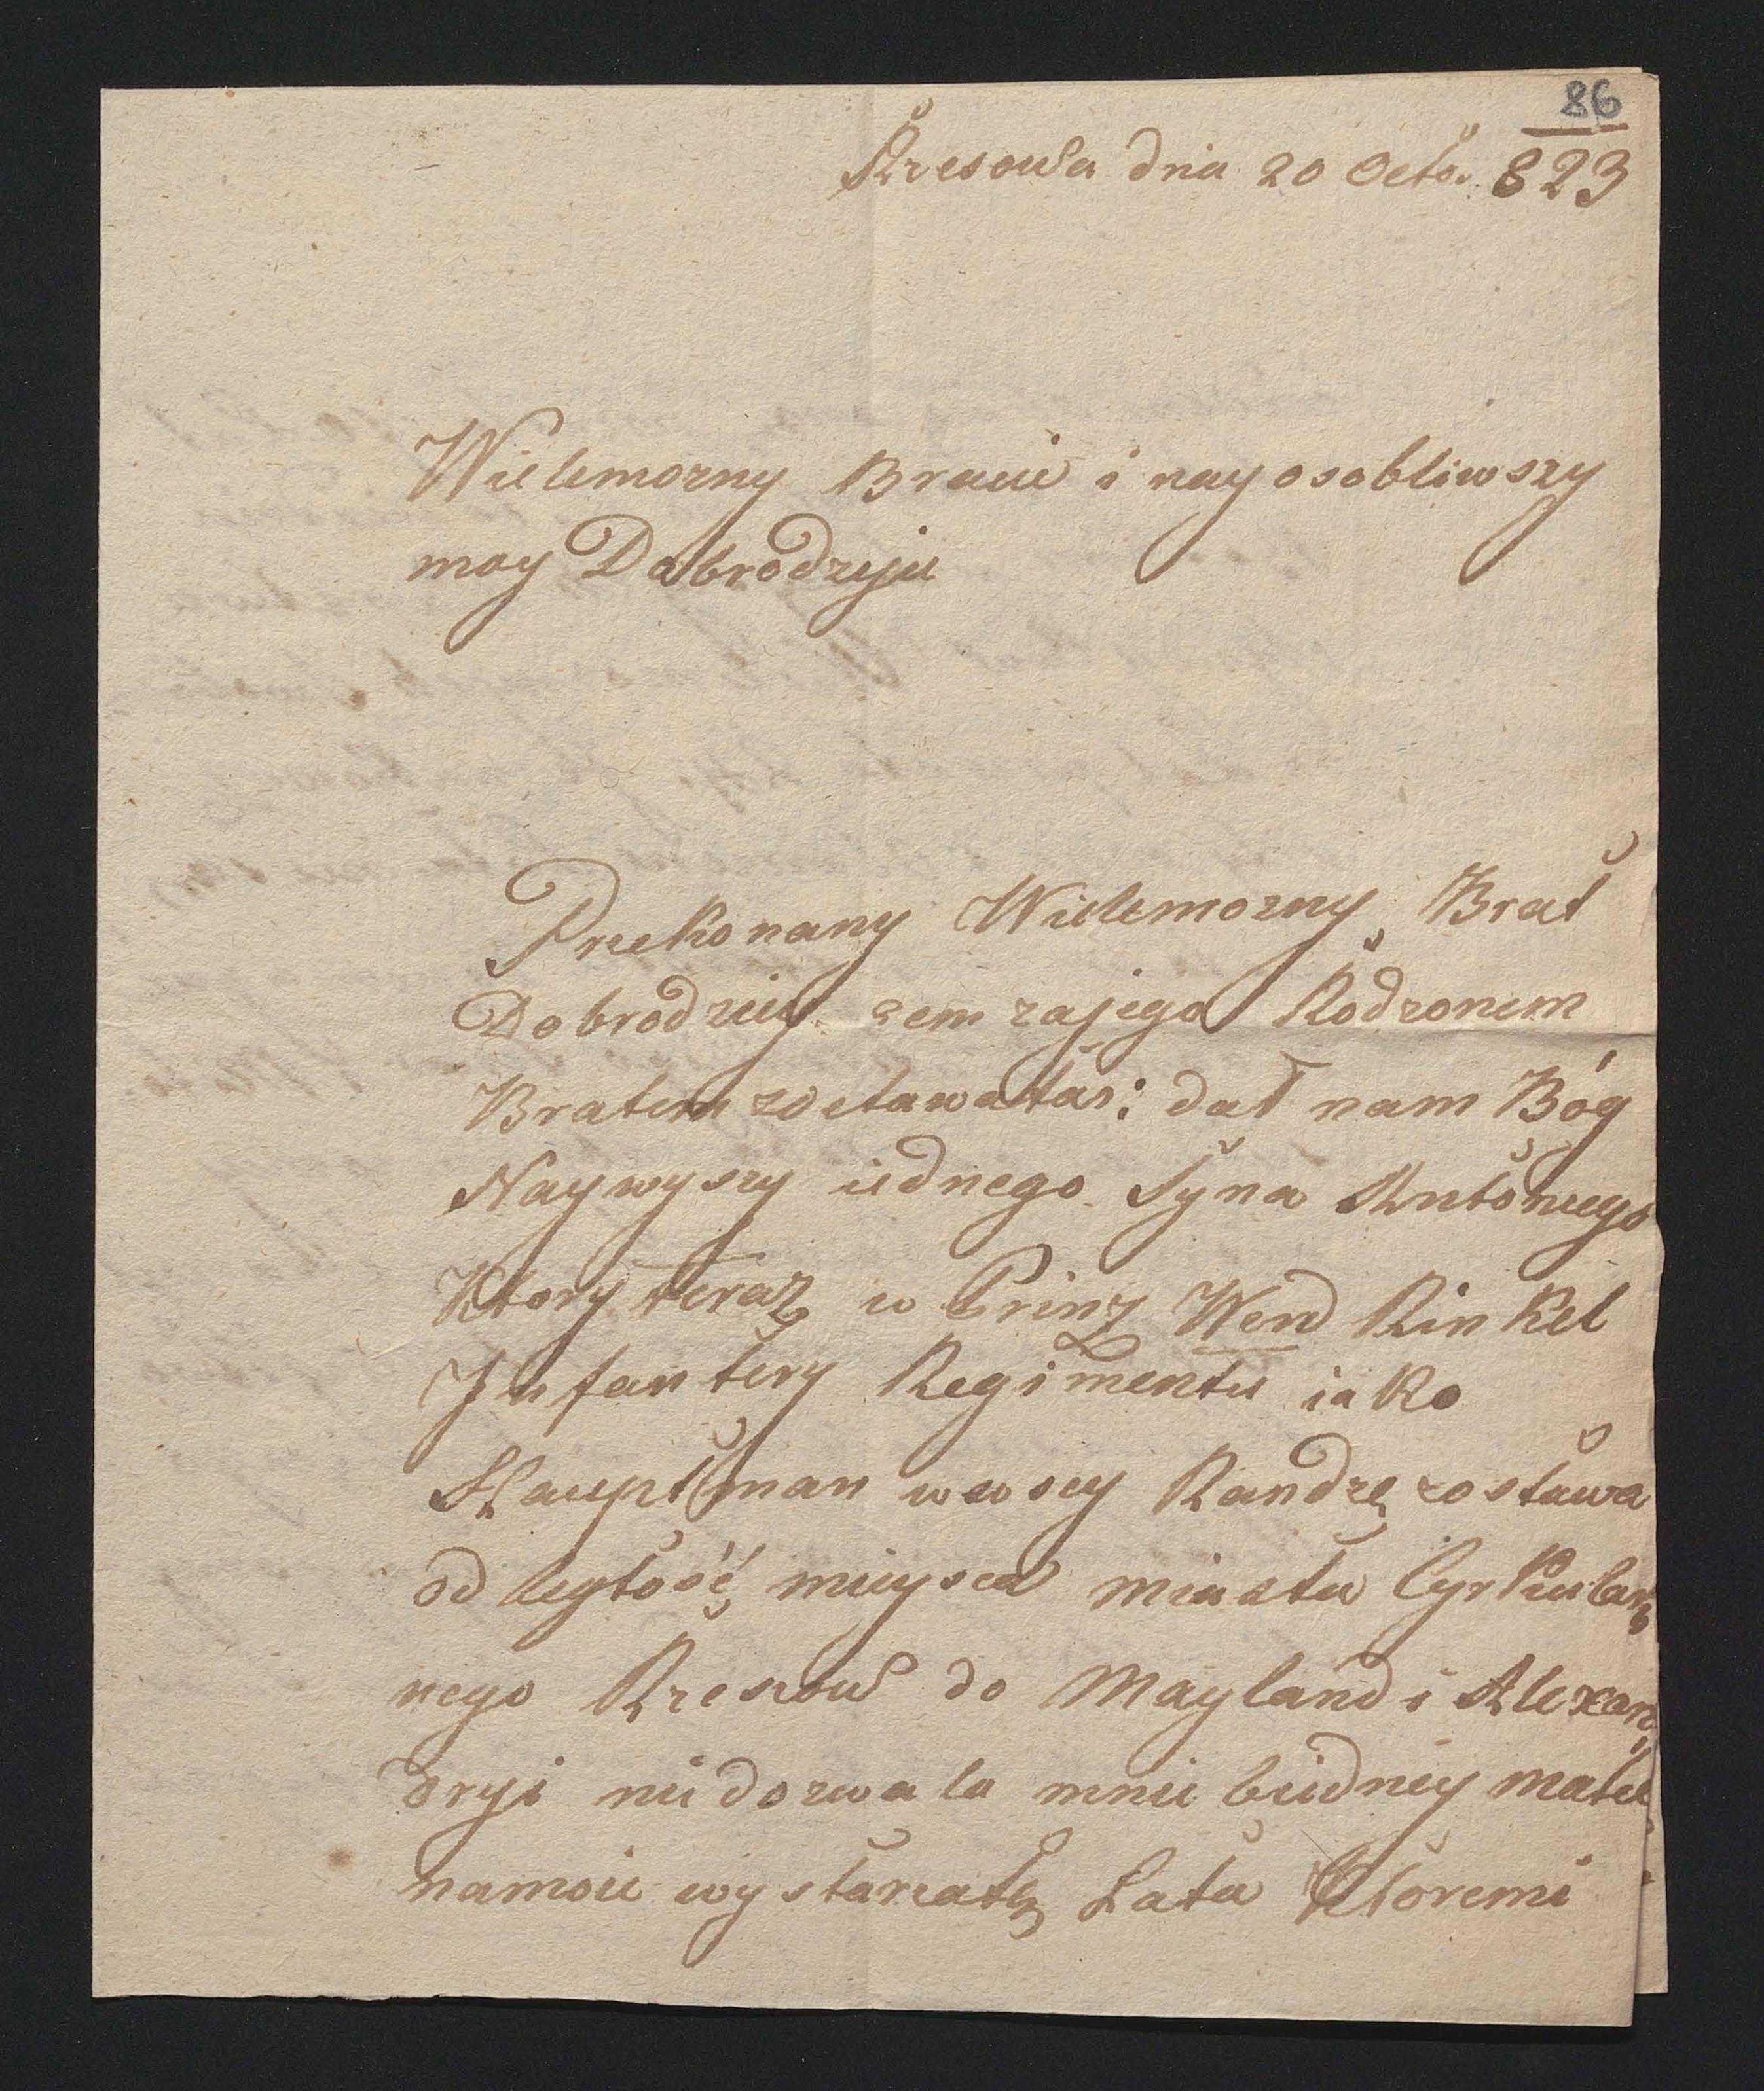 86
Rzesowa dnia 20 Octo. 823
Wielemozny Bracie i nayosobliwszy
moy Dobrodzyju
Przekonany Wielemozny Brat
Dobrodziey zem zajego Rodzonem
Bratem zostawałas: dał nam Bóg
Naywyszy iednego Syna Antoniego
Ktory teraz w Prinz Wend Kinkel
Infantery Regimentu iako
Hauptman wwsey Randzę zostawa
odległość mieysca miasta Cyrkular
nego Rzeszow do Mayland i Alexan
dryi niedozwala mnie biedney matce
namoie wystarzałę Lata Ktoremi